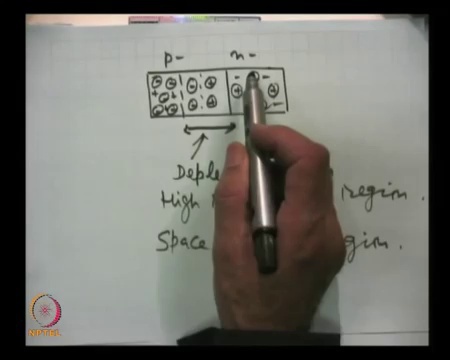 p- n-
Deple
High region.
Space gion.
NPTEL